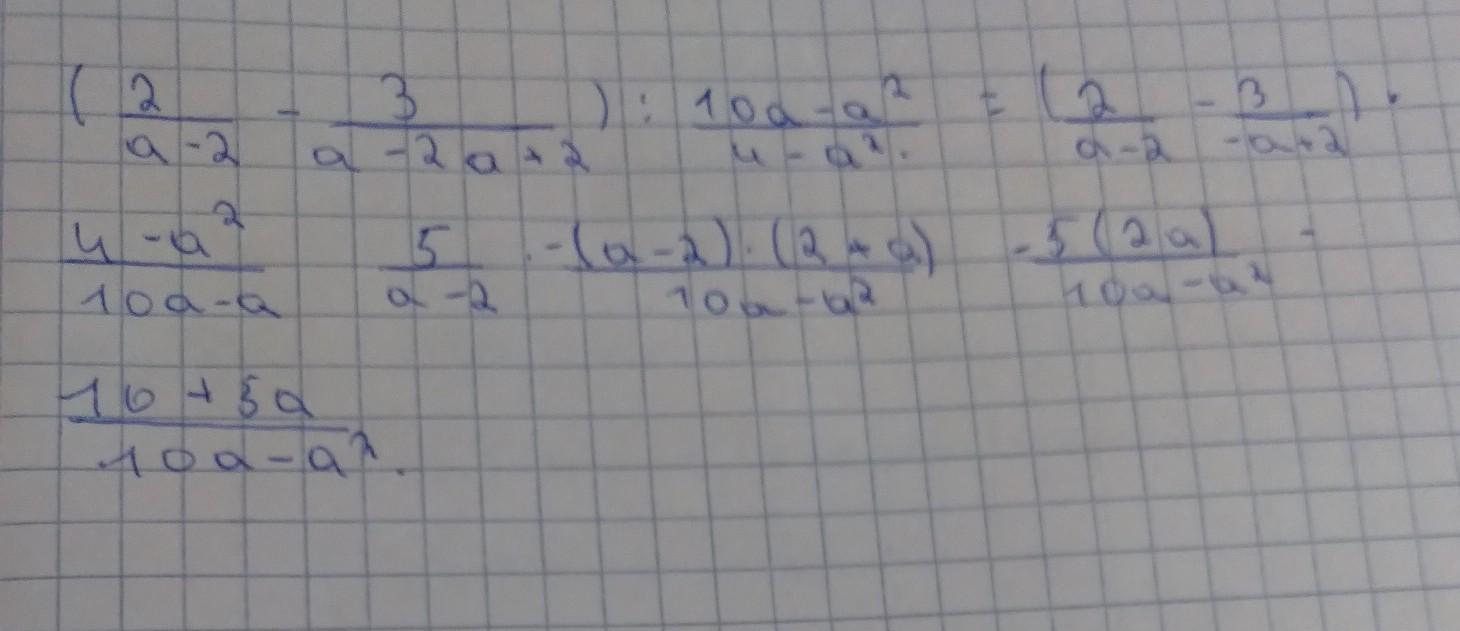 ( 2/(a-2) - 3/(a-2a+2) ) : (10a-a²)/(4-a².) = ( 2/(a-2) - 3/(-a+2) ) ·
(4-a²)/(10a-a) 5/(a-2) · -(a-2)·(2+a)/(10a-a²) -5(2a)/(10a-a²) -
(10+5a)/(10a-a²).